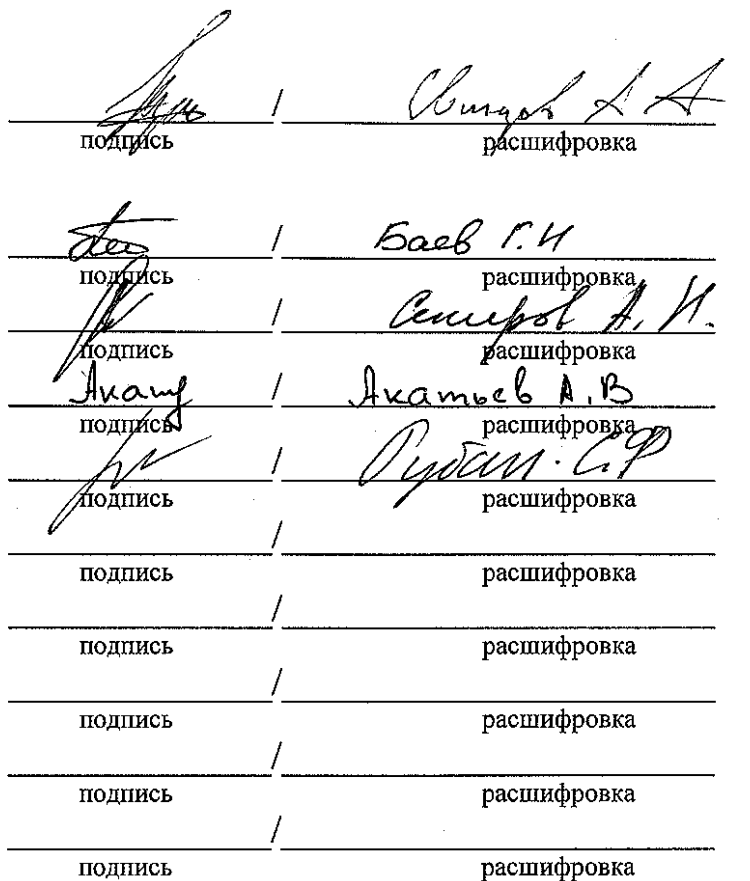 / А А
подпись расшифровка
/ Баев Г.И
подпись расшифровка
/ А. И.
подпись расшифровка
Акату / Акатьев А.В
подпись расшифровка
/ Рубан. С.Ф
подпись расшифровка
/
подпись расшифровка
/
подпись расшифровка
/
подпись расшифровка
/
подпись расшифровка
/
подпись расшифровка